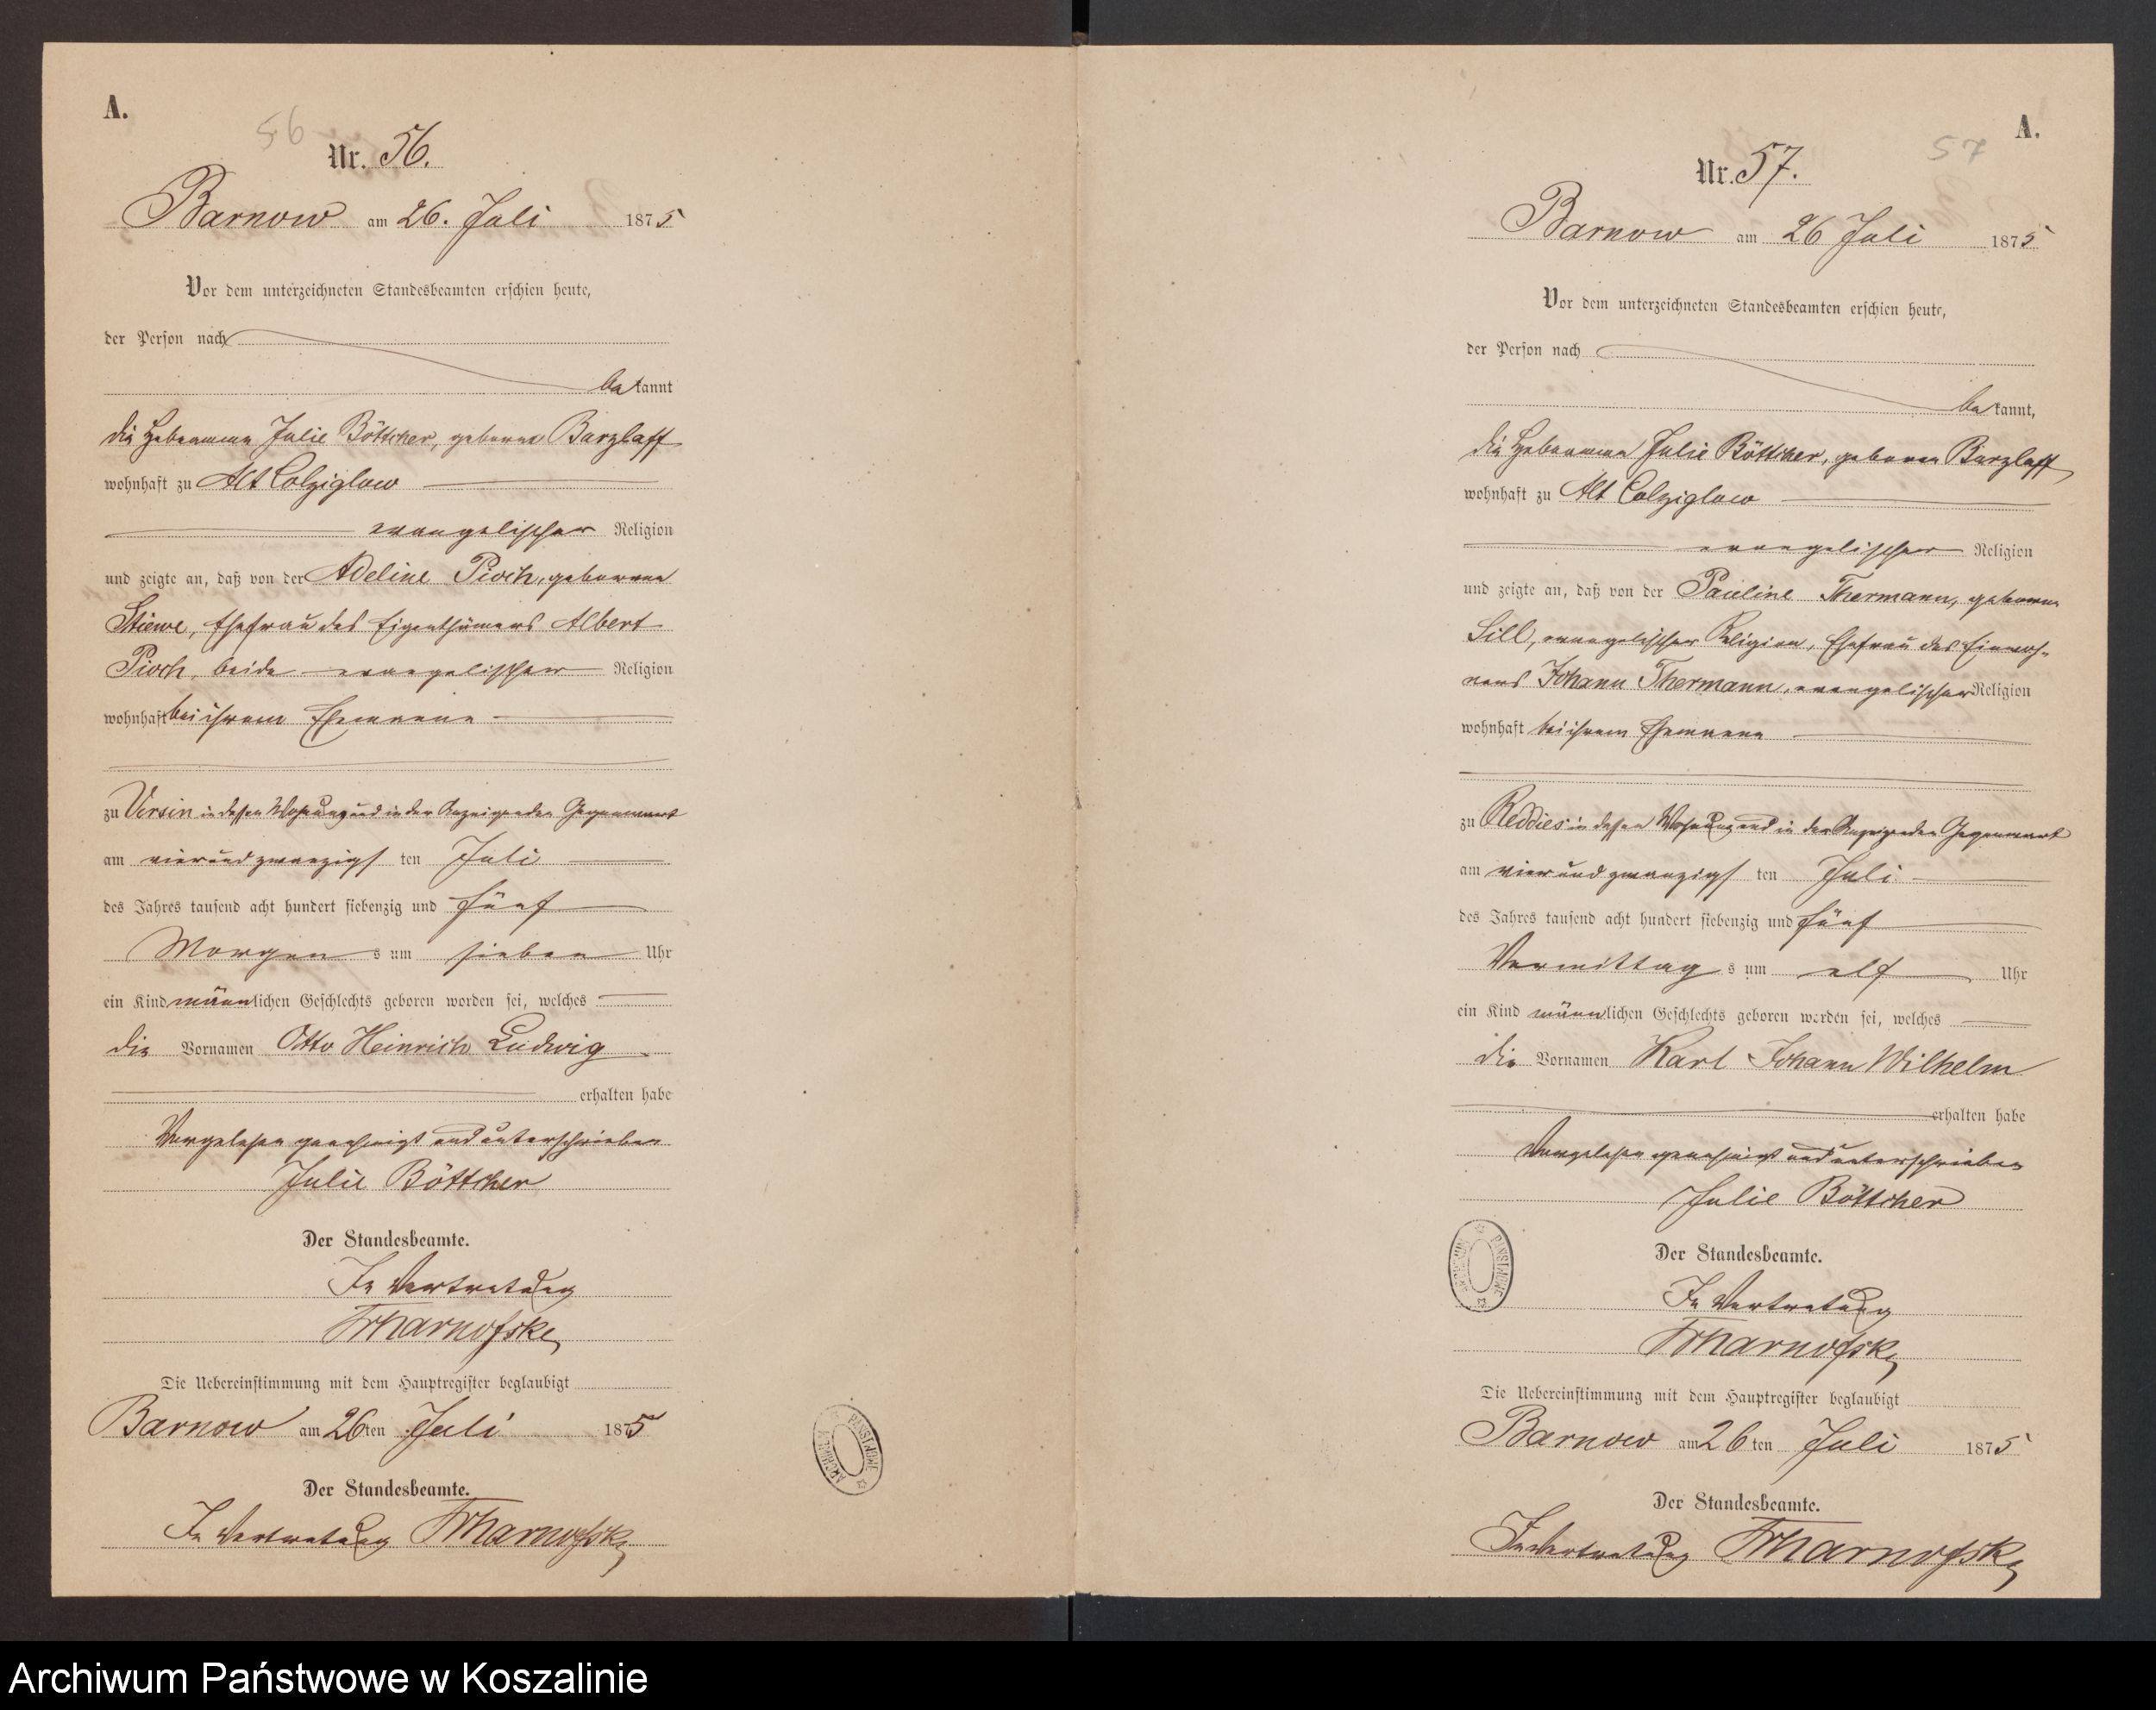 A.
56
Nr. 56.
Barnow am 26. Juli 1875
Vor dem unterzeichneten Standesbeamten erschien heute,
der Person nach
bekannt
die Hebeamme Julie Böttcher, geborene Barzlaff
wohnhaft zu Alt Colziglow
evangelischer Religion
und zeigte an, daß von der Adeline Pioch, geborene
Stiewe, Ehefrau des Eigenthümers Albert
Pioch, beide evangelischer Religion
wohnhaft bei ihrem Ehemanne
zu Versin in dessen Wohnung und in der Anzeigenden Gegenwart
am vierundzwanzigs ten Juli
des Jahres tausend acht hundert siebenzig und fünf
Morgens um sieben Uhr
ein Kind männlichen Geschlechts geboren worden sei, welches
die Vornamen Otto Heinrich Ludwig
erhalten habe
Vorgelesen genehmigt und unterschrieben
Julie Böttcher
Der Standesbeamte.
In Vertretung
Die Uebereinstimmung mit dem Hauptregister beglaubigt
Barnow am 26ten Juli 1875
Der Standesbeamte.
In Vertretung
ARCHIWUM PAŃSTWOWE
A.
57
Nr. 57.
Barnow am 26 Juli 1875
Vor dem unterzeichneten Standesbeamten erschien heute,
der Person nach
bekannt,
die Hebeamme Julie Böttcher, geborene Barzlaff
wohnhaft zu Alt Colziglow
evangelischer Religion
und zeigte an, daß von der Pauline Thermann, geborene
Sill, evangelischer Religion, Ehefrau des Einwoh-
ners Johann Thermann, evangelischer Religion
wohnhaft bei ihrem Ehemanne
zu Reddies in dessen Wohnung und in der Anzeigenden Gegenwart
am vierundzwanzigs ten Juli
des Jahres tausend acht hundert siebenzig und fünf
Vormittags um elf Uhr
ein Kind männlichen Geschlechts geboren worden sei, welches
die Vornamen Karl Johann Wilhelm
erhalten habe
Vorgelesen genehmigt und unterschrieben
Julie Böttcher
ARCHIWUM PAŃSTWOWE
Der Standesbeamte.
In Vertretung
Die Uebereinstimmung mit dem Hauptregister beglaubigt
Barnow am 26ten Juli 1875
Der Standesbeamte.
In Vertretung
Archiwum Państwowe w Koszalinie